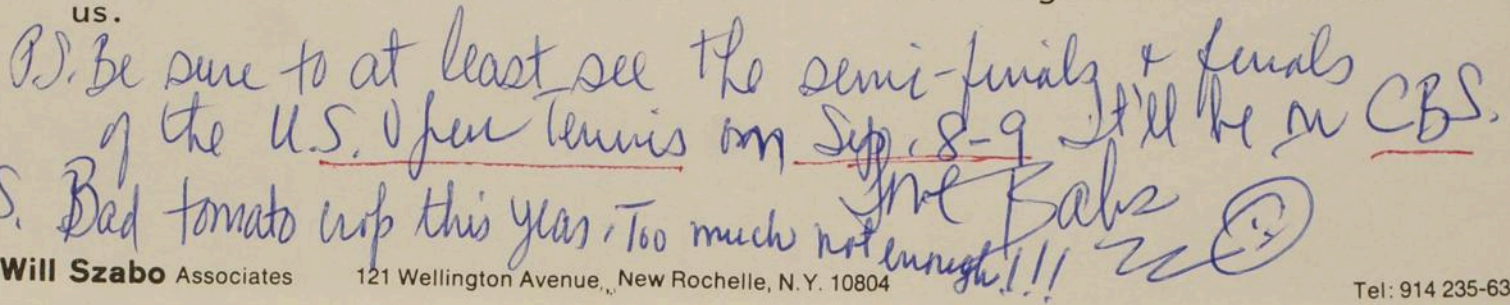 us.
P.S. Be sure to at least see the semi-finals & finals
of the U.S. Open Tennis on Sep. 8-9 It'll be on CBS.
S. Bad tomato crop this year. Too much not enough!!!
Babs
Will Szabo Associates 121 Wellington Avenue, New Rochelle, N.Y. 10804 Tel: 914 235-63